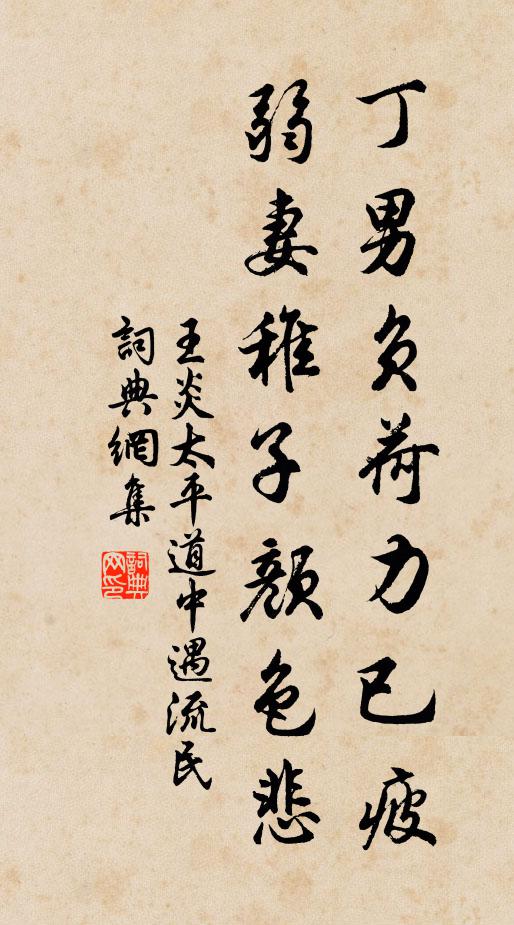 丁男負荷力已疲
弱妻稚子顏色悲
王炎太平道中遇流民
詞典網集
詞典網印